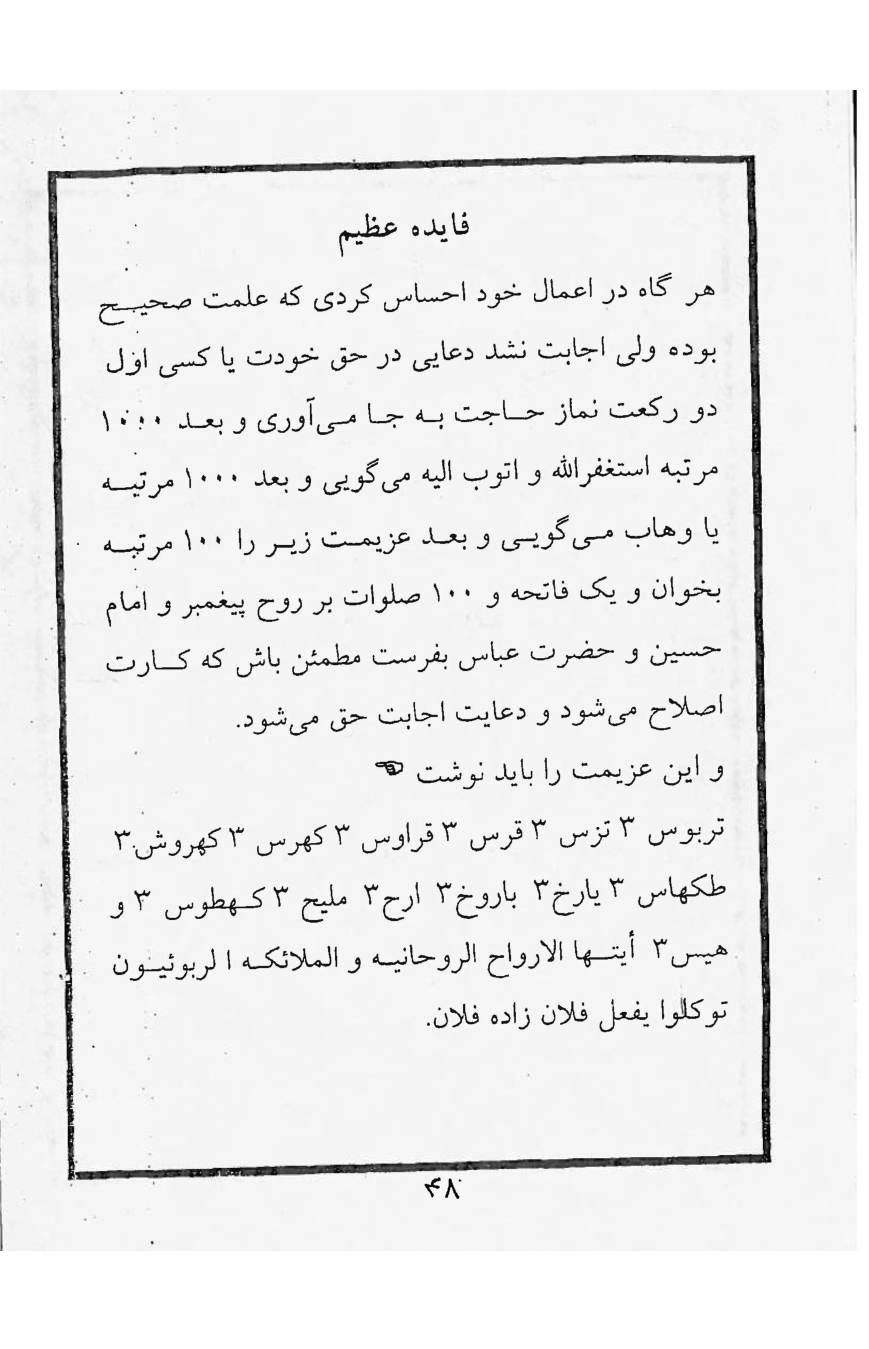 فایده عظیم
هر گاه در اعمال خود احساس کردی که علمت صحیح
بوده ولی اجابت نشد دعایی در حق خودت یا کسی اول
دو رکعت نماز حاجت به جا می‌آوری و بعد ۱۰۰۰
مرتبه استغفرالله و اتوب الیه می‌گویی و بعد ۱۰۰۰ مرتبه
یا وهاب می‌گویی و بعد عزیمت زیر را ۱۰۰ مرتبه
بخوان و یک فاتحه و ۱۰۰ صلوات بر روح پیغمبر و امام
حسین و حضرت عباس بفرست مطمئن باش که کارت
اصلاح می‌شود و دعایت اجابت حق می‌شود.
و این عزیمت را باید نوشت ☜
تربوس ۳ تزس ۳ قرس ۳ قراوس ۳ کهرس ۳ کهروش ۳
طکهاس ۳ یارخ۳ باروخ۳ ارح۳ ملیح ۳ کهطوس ۳ و
هیس۳ أیتها الارواح الروحانیه و الملائکه ا لربوثیون
توکلوا یفعل فلان زاده فلان.
۴۸